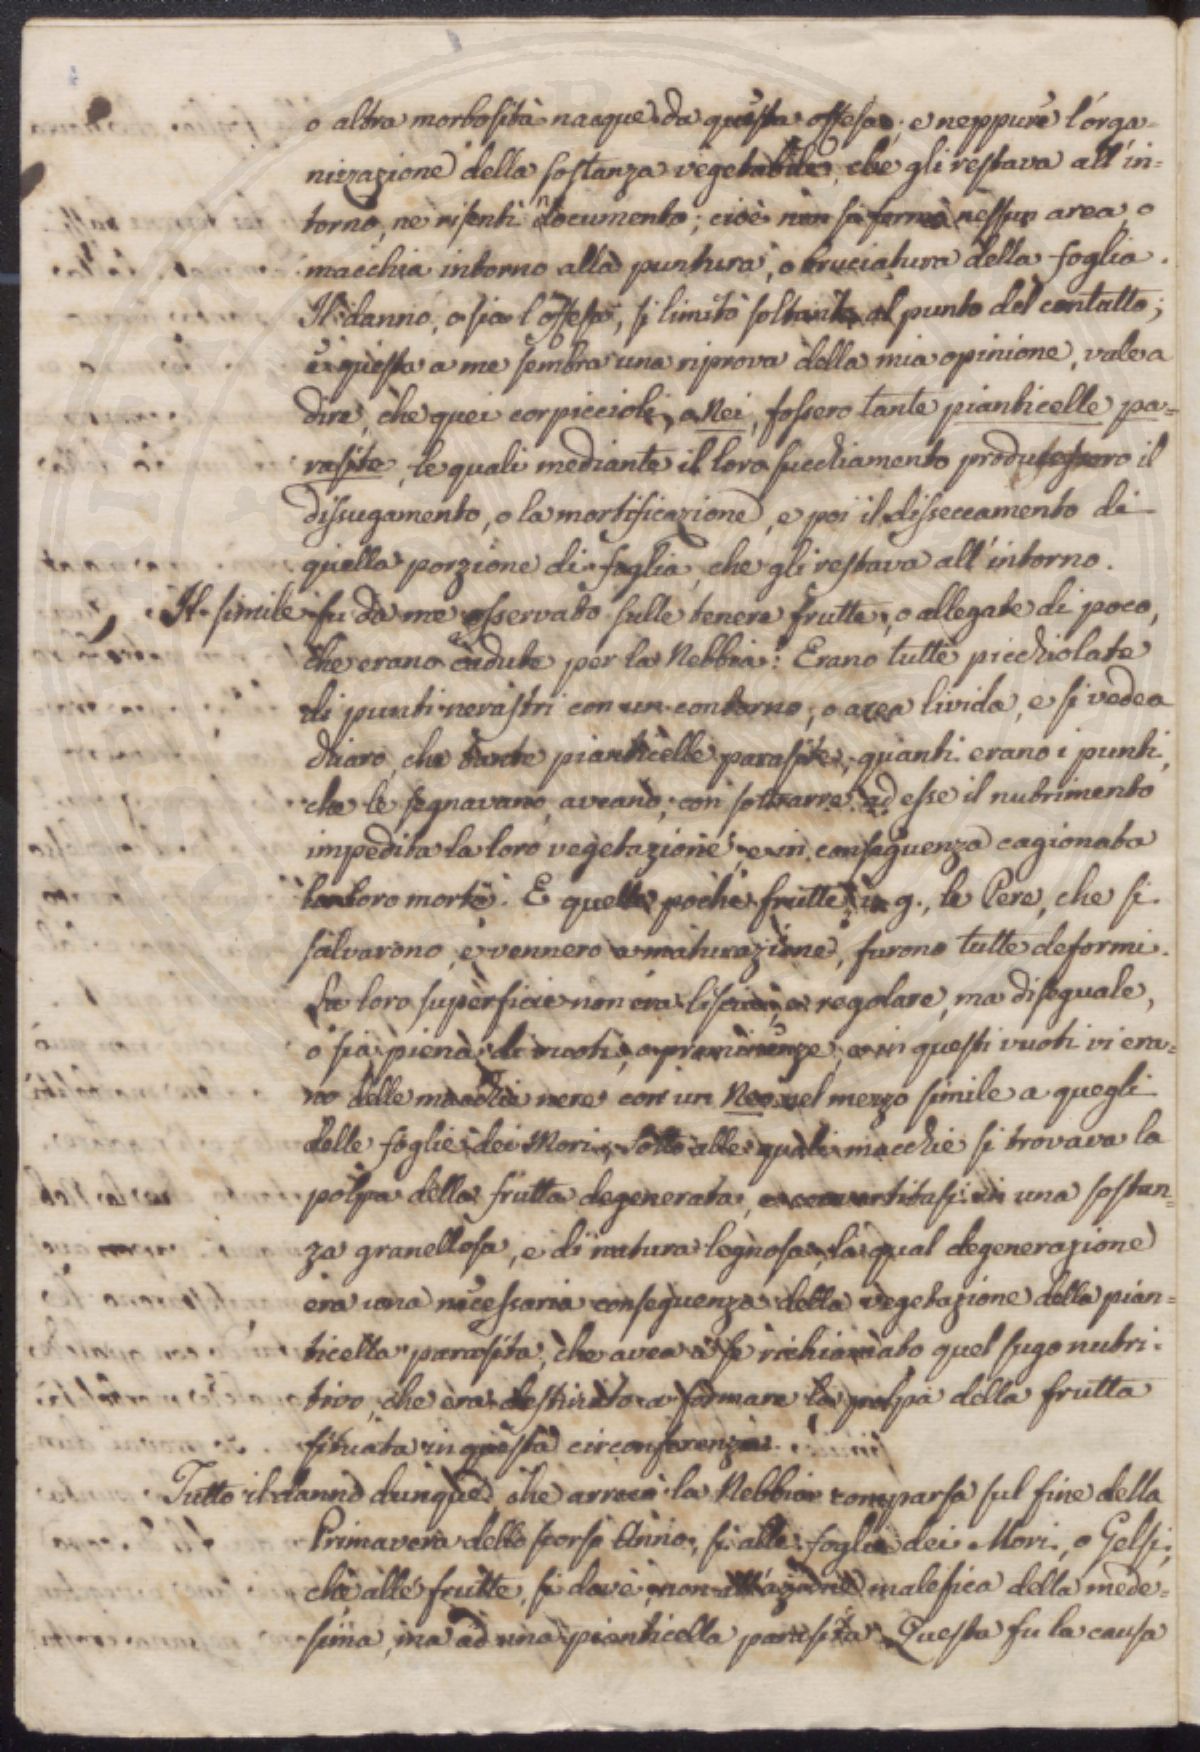 o altra morbosità nacque da questa offesa; e neppure l'orga-
nizzazione della sostanza vegetabile, che gli restava all'in=
torno, ne risentì nocumento; cioè non si formò nessun area, o
macchia intorno alla puntura, o bruciatura della foglia.
Il danno, o sia l'offesa, si limitò soltanto al punto del contatto;
e questa a me sembra una riprova della mia opinione, vale a
dire, che quei corpiccioli, o Nei, fossero tante pianticelle pa=
rasite, le quali mediante il loro succhiamento producessero il
dissugamento, o la mortificazione, e poi il disseccamento di
quella porzione di foglia, che gli restava all'intorno.
Il simile fu da me osservato sulle tenere frutte, o allegate di poco,
che erano cadute per la Nebbia: Erano tutte picchiolate
di punti nerastri con un contorno, o area livida, e si vedea
chiaro, che tante pianticelle parasite, quanti erano i punti,
che le segnavano, aveano, con sottrarre ad esse il nutrimento
impedita la loro vegetazione, e in conseguenza cagionata
la loro morte. E quelle poche frutte v. g., le Pere, che si
salvarono, e vennero a maturazione, furono tutte deformi.
La loro superficie non era liscia, e regolare, ma diseguale,
o sia piena di vuoti, o prominenze, e in questi vuoti vi era=
no delle macchie nere con un Neo nel mezzo simile a quegli
delle foglie dei Mori, sotto alle quali macchie si trovava la
polpa della frutta degenerata, e convertitasi in una sostan=
za granellosa, e di natura legnosa, la qual degenerazione
era una necessaria conseguenza della vegetazione della pian=
ticella parasita, che avea a se richiamato quel sugo nutri-
tivo, che era destinato a formare la polpa della frutta
situata in questa circonferenza.
Tutto il danno dunque, che arrecò la Nebbia comparsa sul fine della
Primavera dello scorso Anno, sì alle foglie dei Mori, o Gelsi,
che alle frutte, si dovè non all'azione malefica della mede=
sima, ma ad una pianticella parasita. Questa fu la causa